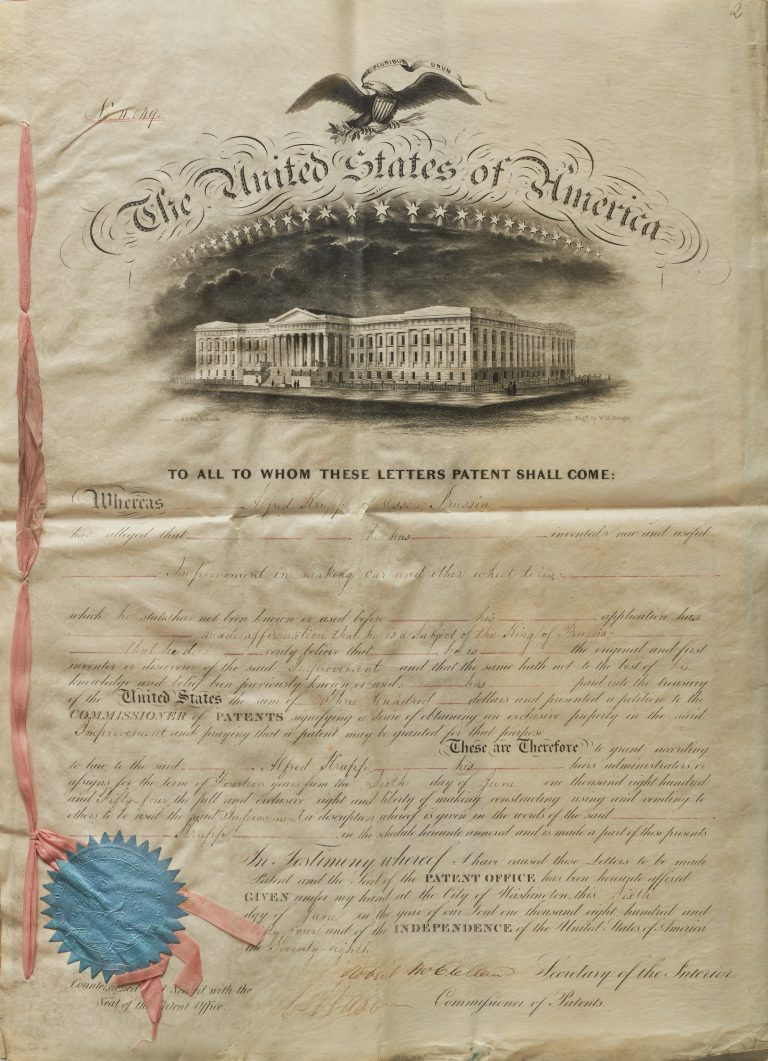 2
E PLURIBUS UNUM
No. 11,049.
The United States of America
Engd. by W.H. Dougal.
TO ALL TO WHOM THESE LETTERS PATENT SHALL COME:
Whereas Alfred Krupp of Essen, Prussia,
has alleged that he has invented a new and useful
Improvement in making car and other wheel tires,
which he states has not been known or used before his application has
made affirmation that he is a Subject of the King of Prussia
that he does verily believe that he is the original and first
inventor or discoverer of the said Improvement and that the same hath not to the best of his
knowledge and belief been previously known or used; has paid into the treasury
of the United States the sum of Three Hundred dollars and presented a petition to the
COMMISSIONER of PATENTS signifying a desire of obtaining an exclusive property in the said
Improvement and praying that a patent may be granted for that purpose
These are Therefore to grant according
to law to the said Alfred Krupp, his heirs administrators or
assigns for the term of Fourteen years from the Sixth day of June one thousand eight hundred
and Fifty-four the full and exclusive right and liberty of making constructing using and vending to
others to be used the said Improvement a description whereof is given in the words of the said
Krupp in the schedule hereunto annexed and is made a part of these presents
In Testimony whereof I have caused these Letters to be made
Patent and the Seal of the PATENT OFFICE has been hereunto affixed
GIVEN under my hand at the City of Washington this Sixth
day of June in the year of our Lord one thousand eight hundred and
Fifty four and of the INDEPENDENCE of the United States of America
the Seventy eighth.
Robert McClelland Secretary of the Interior
Countersigned and Sealed with the
Seal of the Patent Office.
Commissioner of Patents